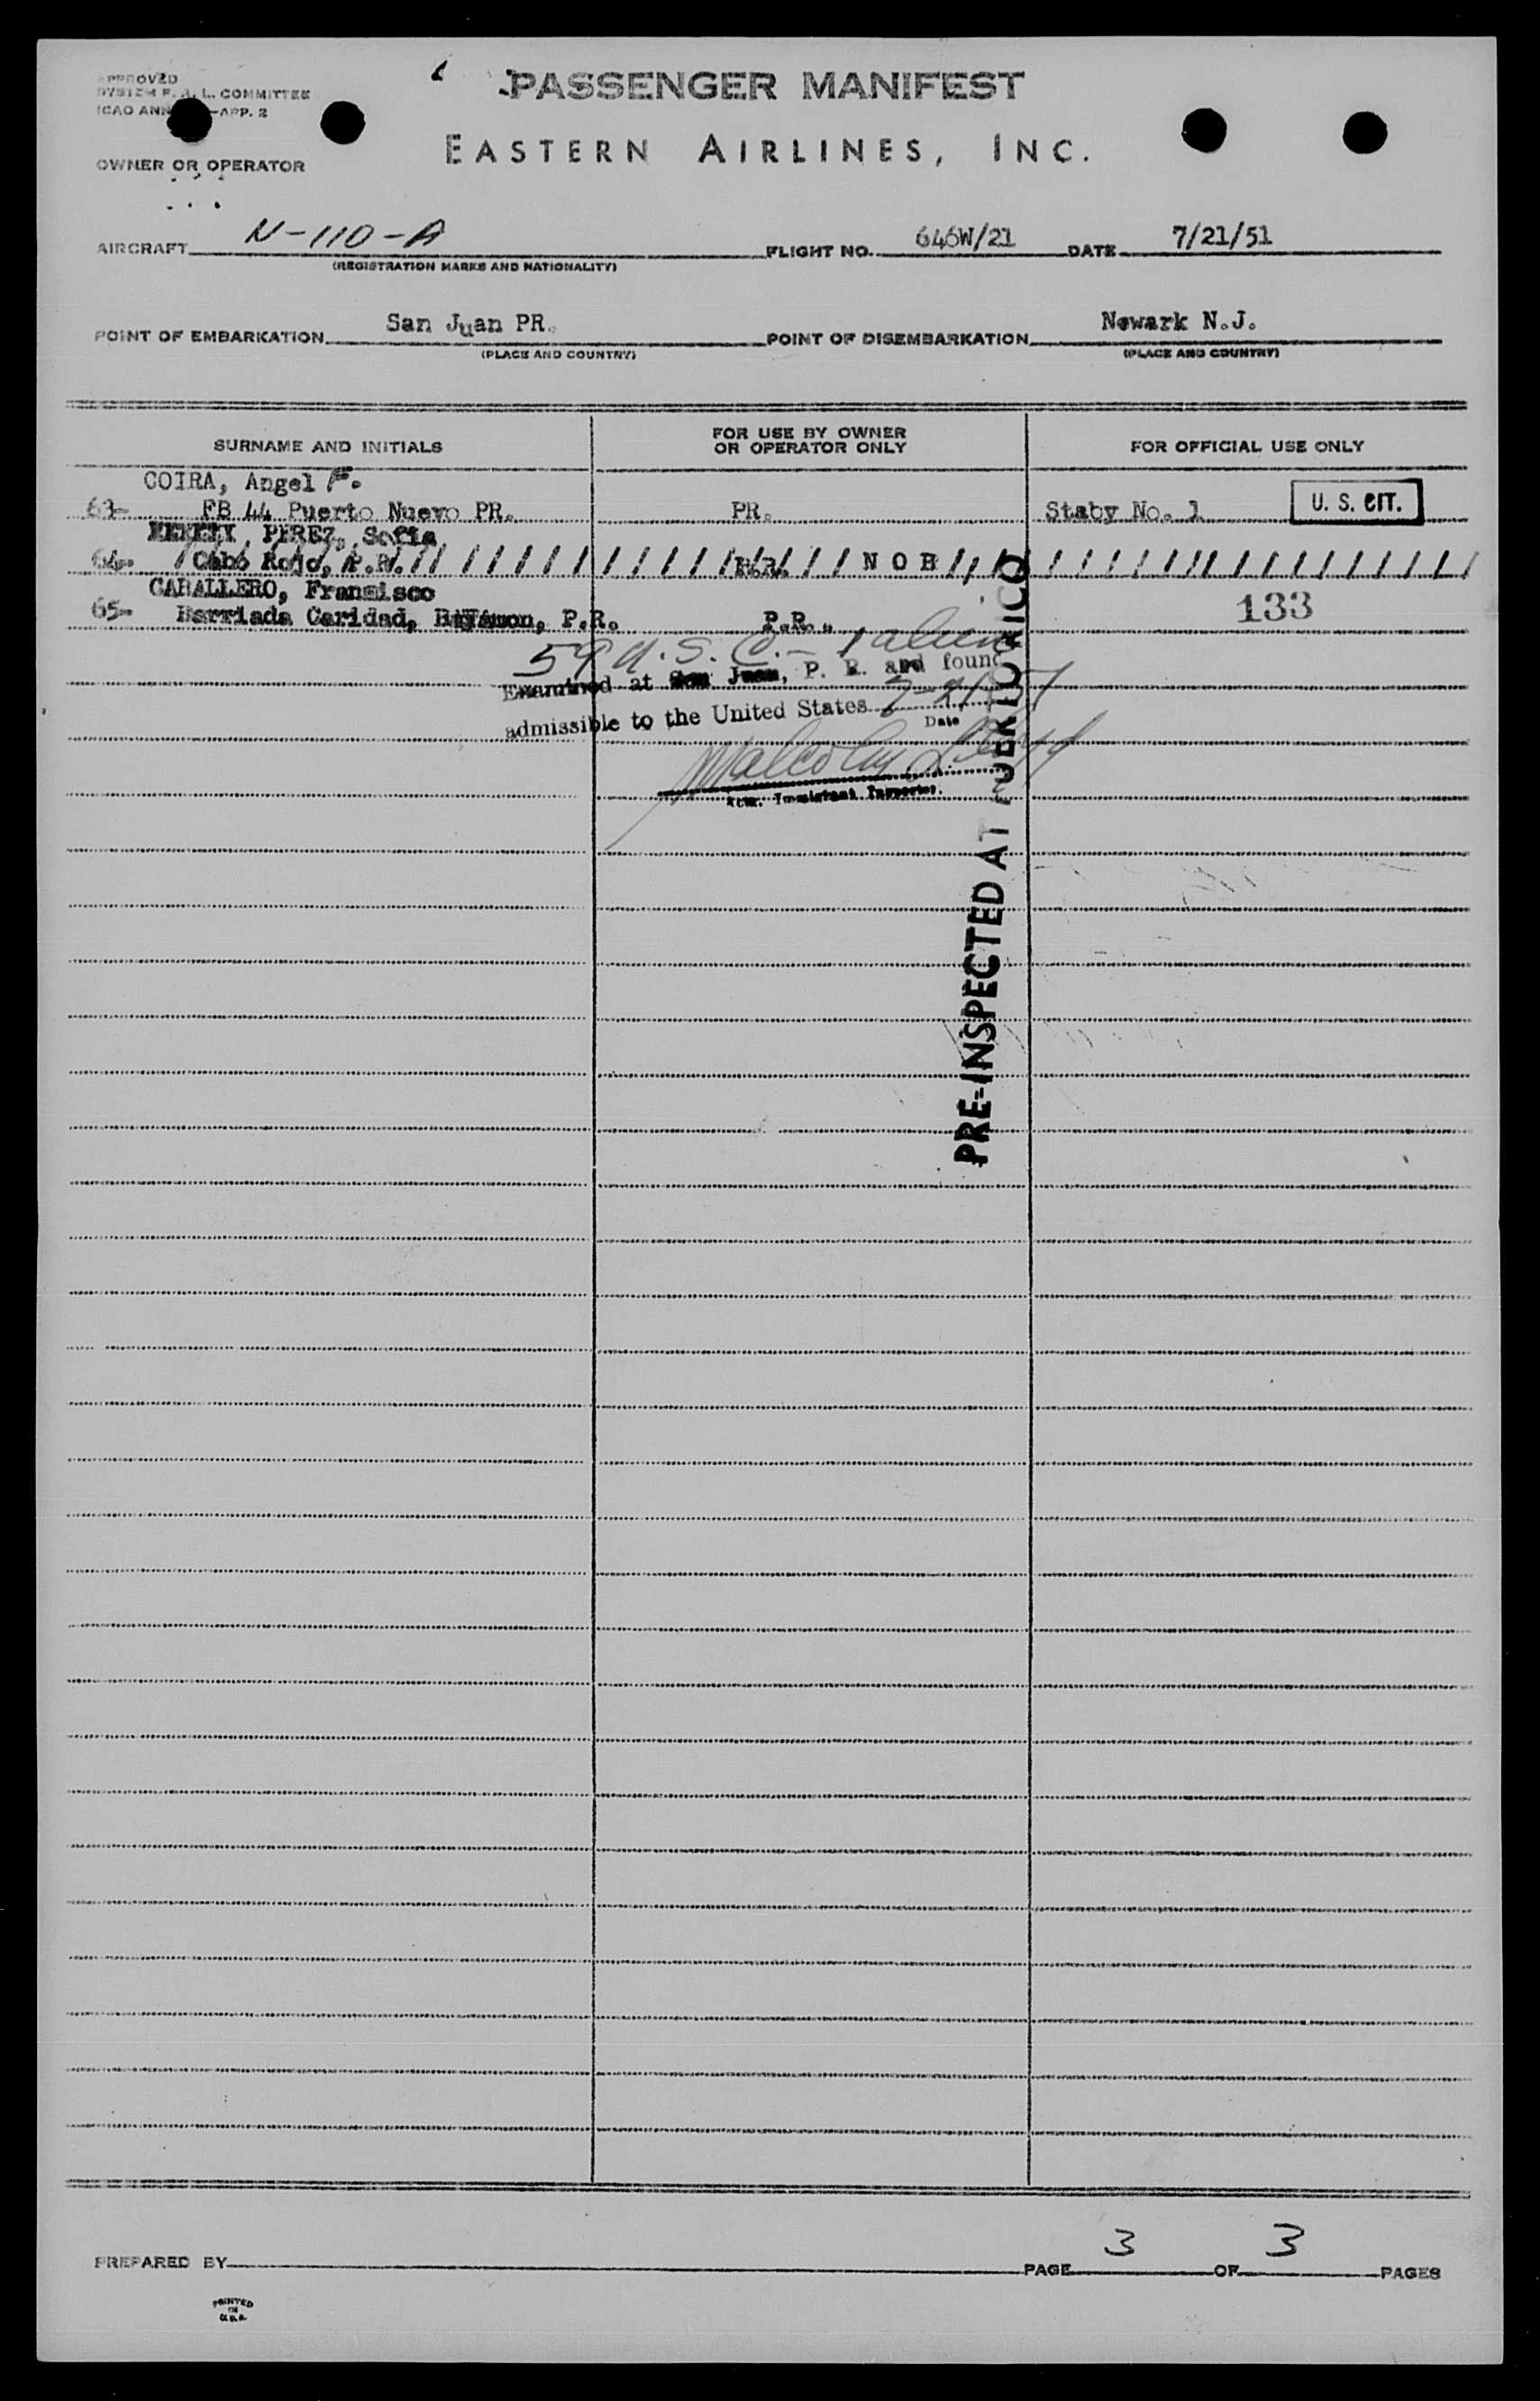 APPROVED
SYSTEM F. A. L. COMMITTEE
ICAO ANN -APP. 2
PASSENGER MANIFEST
EASTERN AIRLINES, INC.
OWNER OR OPERATOR
AIRCRAFT N-110-A FLIGHT NO. 646W/21 DATE 7/21/51
(REGISTRATION MARKS AND NATIONALITY)
POINT OF EMBARKATION San Juan PR. POINT OF DISEMBARKATION Newark N.J.
(PLACE AND COUNTRY) (PLACE AND COUNTRY)
SURNAME AND INITIALS FOR USE BY OWNER OR OPERATOR ONLY FOR OFFICIAL USE ONLY
COIRA, Angel F.
63- FB 44 Puerto Nuevo PR. PR. Staby No. 1 U. S. CIT.
PEREZ, Sofia
64- Cabo Rojo, P.R. P.R. N O B
CABALLERO, Fransisco
65- Barriada Caridad, Bayamon, P.R. P.R. 133
59 U.S.C. - 1 alien
Examined at San Juan, P. R. and found
admissible to the United States 7-21-51
Date
Malcolm
Immigrant Inspector.
PRE-INSPECTED AT PUERTO RICO
PREPARED BY PAGE 3 OF 3 PAGES
PRINTED
IN
U.S.A.